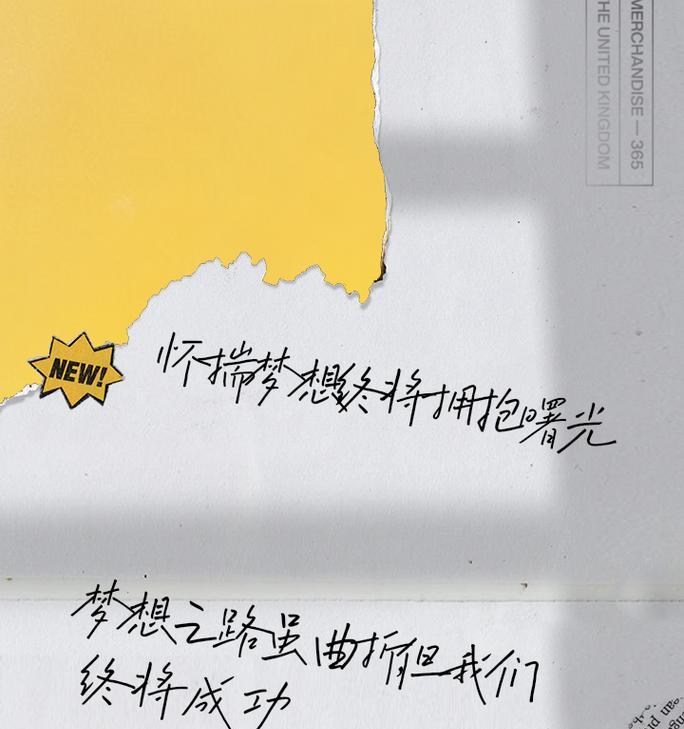 MERCHANDISE — 365
THE UNITED KINGDOM
NEW!
怀揣梦想终将拥抱曙光
梦想之路虽曲折但我们
终将成功